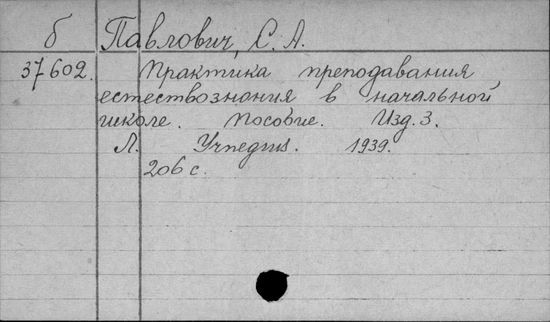 б Павлович, С. А.
37602. Практика преподавания
естествознания в начальной
школе. Пособие. Изд. 3.
Л. Учпедгиз. 1939.
206 с.